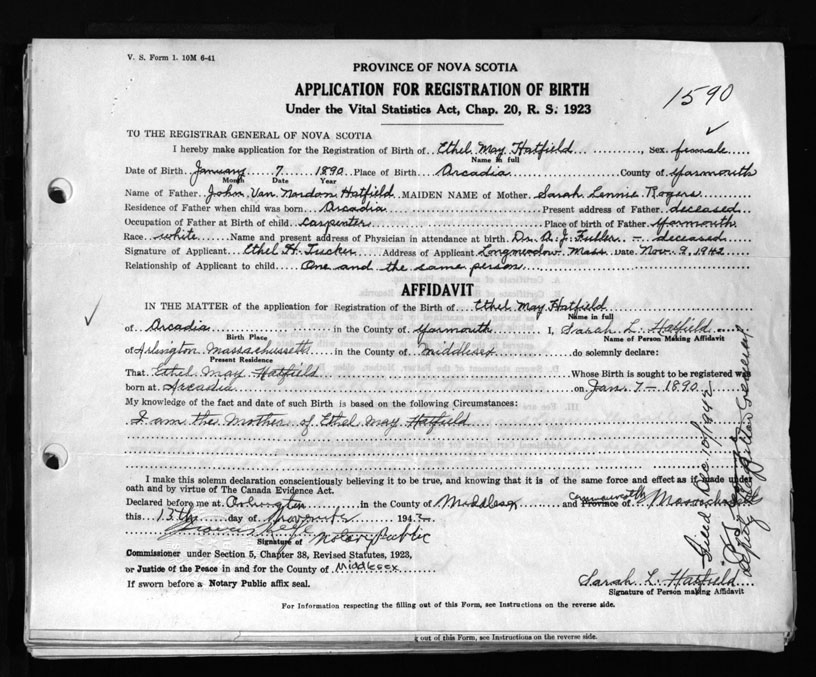 V. S. Form 1. 10M 6-41
PROVINCE OF NOVA SCOTIA
APPLICATION FOR REGISTRATION OF BIRTH
Under the Vital Statistics Act, Chap. 20, R. S. 1923
1590
TO THE REGISTRAR GENERAL OF NOVA SCOTIA
I hereby make application for the Registration of Birth of Ethel May Hatfield, Sex female
Name in full
Date of Birth January 7 1890 Place of Birth Arcadia County of Yarmouth
Month Date Year
Name of Father John Van Nordon Hatfield MAIDEN NAME of Mother Sarah Lennie Rogers
Residence of Father when child was born Arcadia Present address of Father deceased
Occupation of Father at Birth of child carpenter Place of birth of Father Yarmouth
Race white Name and present address of Physician in attendance at birth Dr. A. J. Fuller - deceased
Signature of Applicant Ethel H. Tucker Address of Applicant Longmeadow, Mass Date Nov. 9, 1942
Relationship of Applicant to child One and the same person
AFFIDAVIT
IN THE MATTER of the application for Registration of the Birth of Ethel May Hatfield
Name in full
of Arcadia in the County of Yarmouth I, Sarah L. Hatfield
Birth Place Name of Person Making Affidavit
of Arlington Massachusetts in the County of Middlesex do solemnly declare:
Present Residence
That Ethel May Hatfield Whose Birth is sought to be registered was
born at Arcadia on Jan. 7 - 1890
My knowledge of the fact and date of such Birth is based on the following Circumstances:
I am the Mother of Ethel May Hatfield
I make this solemn declaration conscientiously believing it to be true, and knowing that it is of the same force and effect as if made under
oath and by virtue of The Canada Evidence Act.
Declared before me at Arlington in the County of Middlesex and Commonwealth Province of Massachusetts
this 13th day of November 1942
Signature of Notary Public
Commissioner under Section 5, Chapter 38, Revised Statutes, 1923,
or Justice of the Peace in and for the County of Middlesex
If sworn before a Notary Public affix seal.
Sarah L. Hatfield
Signature of Person making Affidavit
For Information respecting the filling out of this Form, see Instructions on the reverse side.
Filed Dec 10/1942
Deputy Registrar General
out of this Form, see Instructions on the reverse side.